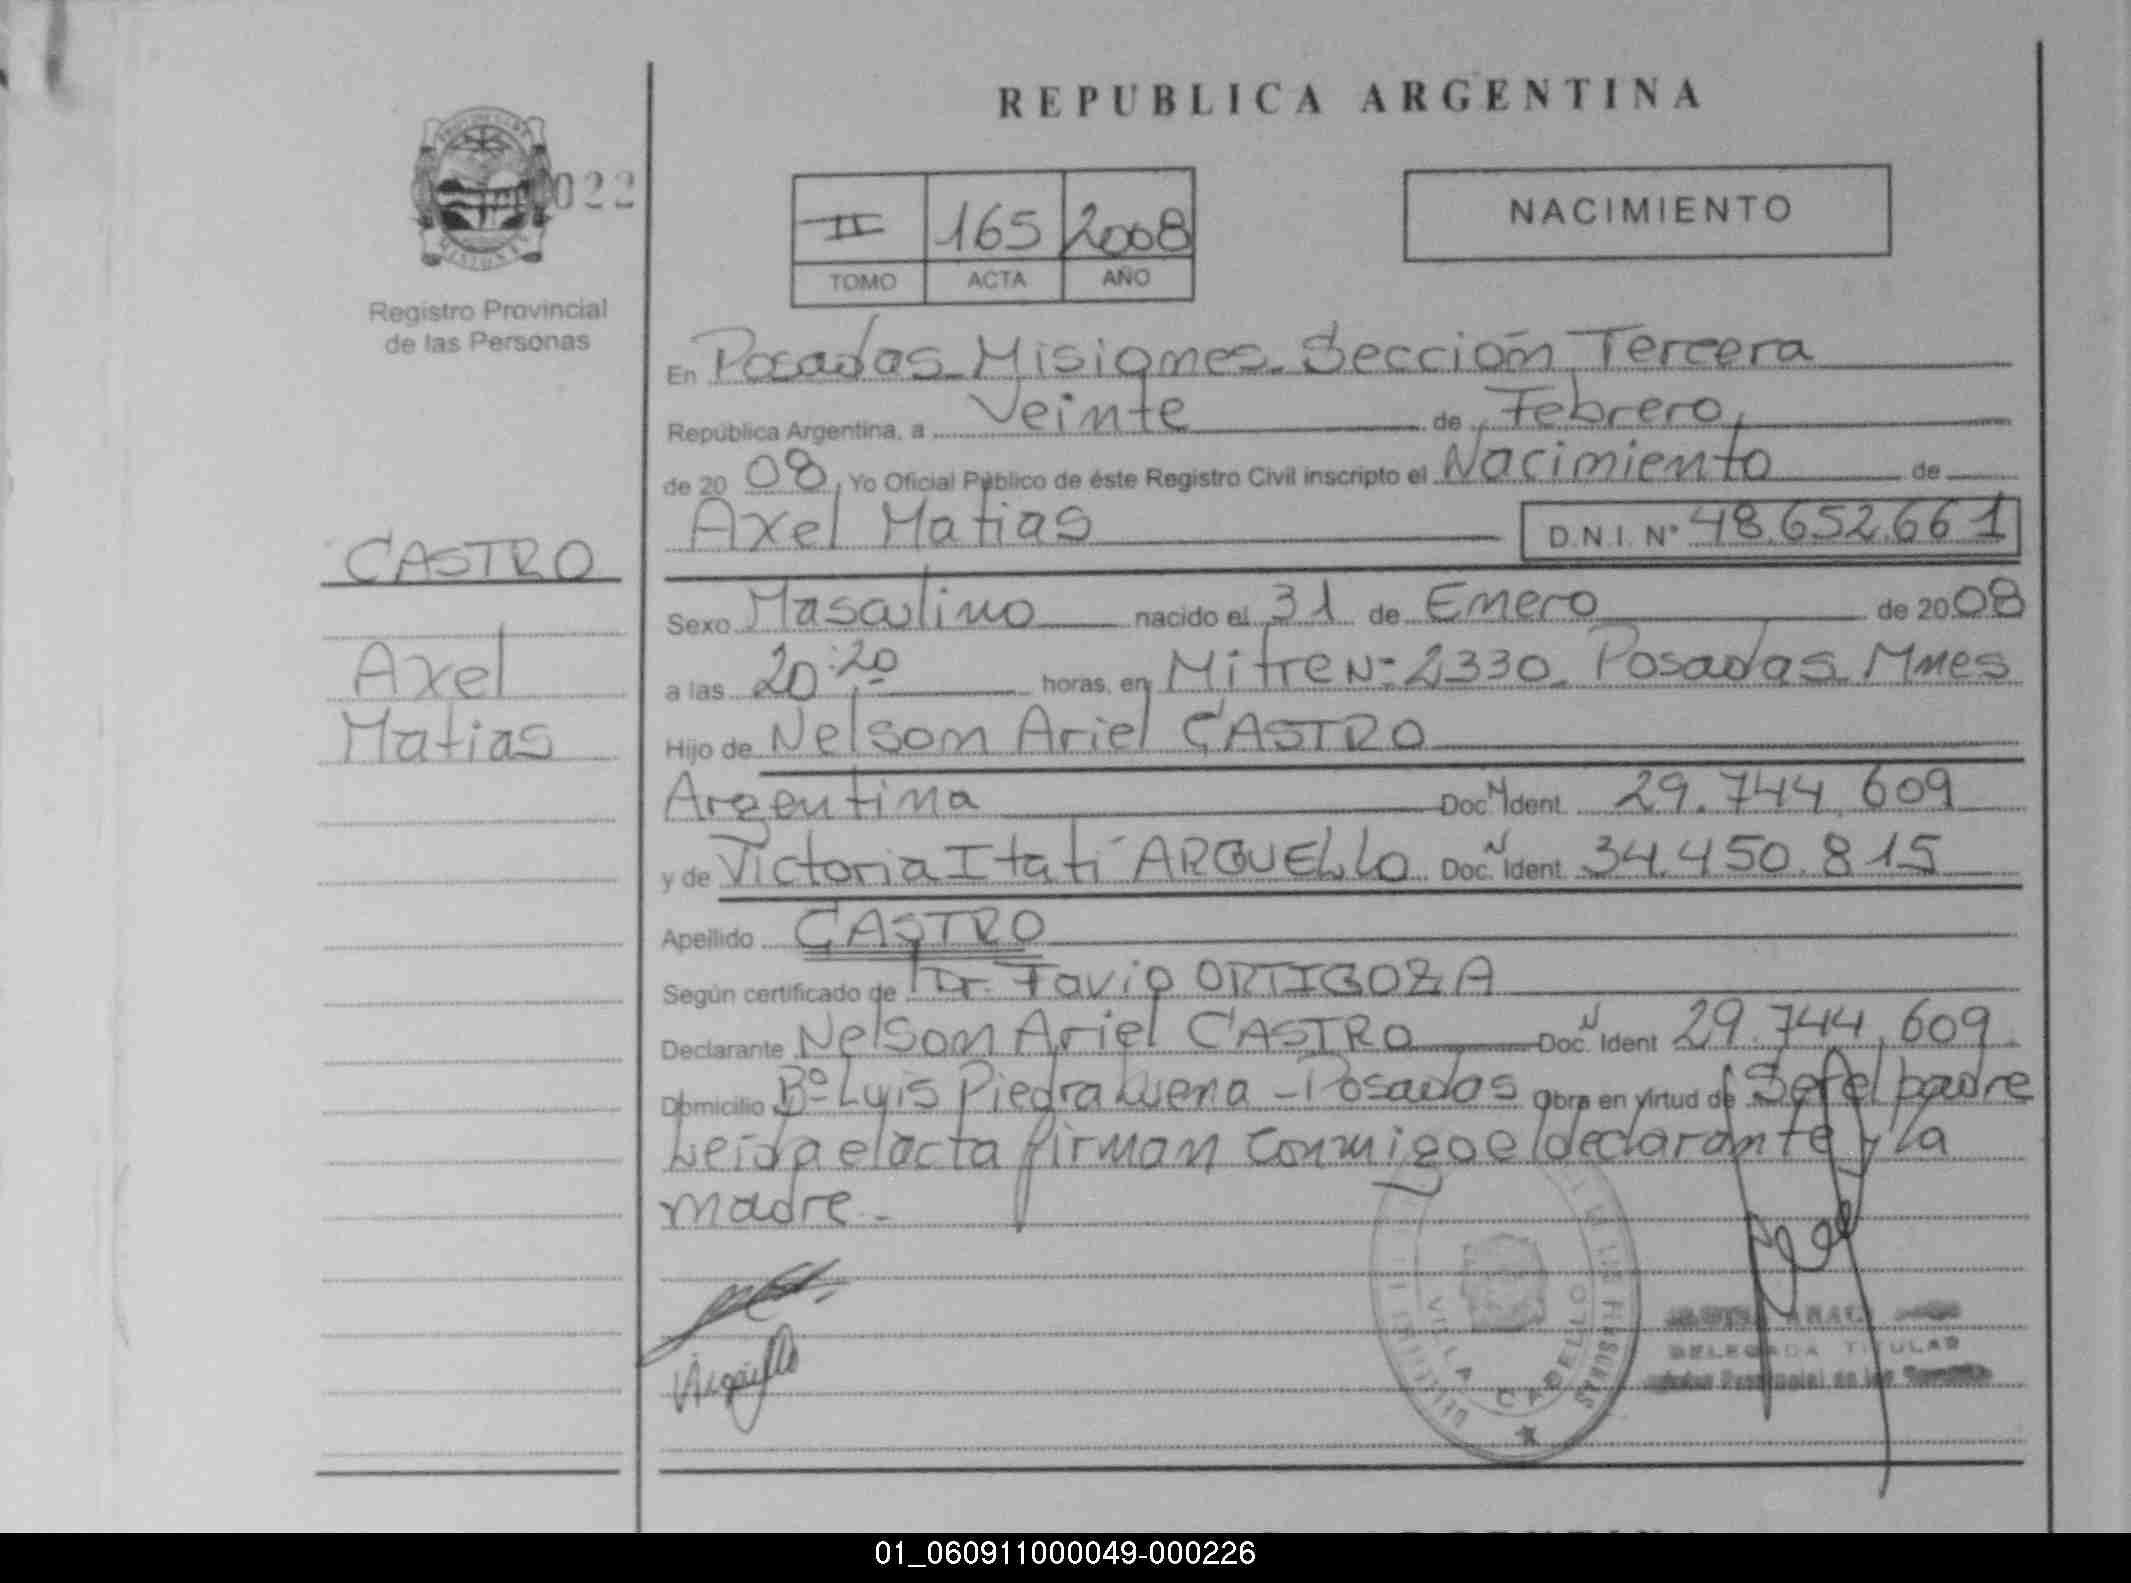 REPUBLICA ARGENTINA
022
II 165 2008
TOMO ACTA AÑO
NACIMIENTO
Registro Provincial
de las Personas
En Posadas Misiones. Sección Tercera
República Argentina, a Veinte de Febrero
de 20 08, Yo Oficial Público de éste Registro Civil inscripto el Nacimiento de
Axel Matias D.N.I. Nº 48.652.661
CASTRO
Axel
Matias
Sexo Masculino nacido el 31 de Enero de 2008
a las 20:20 horas, en Mitre Nº 2330 Posadas Mnes
Hijo de Nelson Ariel CASTRO
Argentina Doc. Ident. 29.744.609
y de Victoria Itatí ARGUELLO Doc. Ident. 34.450.815
Apellido CASTRO
Según certificado de Dr. Favio ORTIGOZA
Declarante Nelson Ariel CASTRO Doc. Ident 29.744.609
Domicilio Bº Luis Piedrabuena - Posadas Obra en virtud de Ser el padre
Leida el acta firman conmigo el declarante y la
madre -
Arguello
VILLA CABELLO
DELEGADA TITULAR
01_060911000049-000226